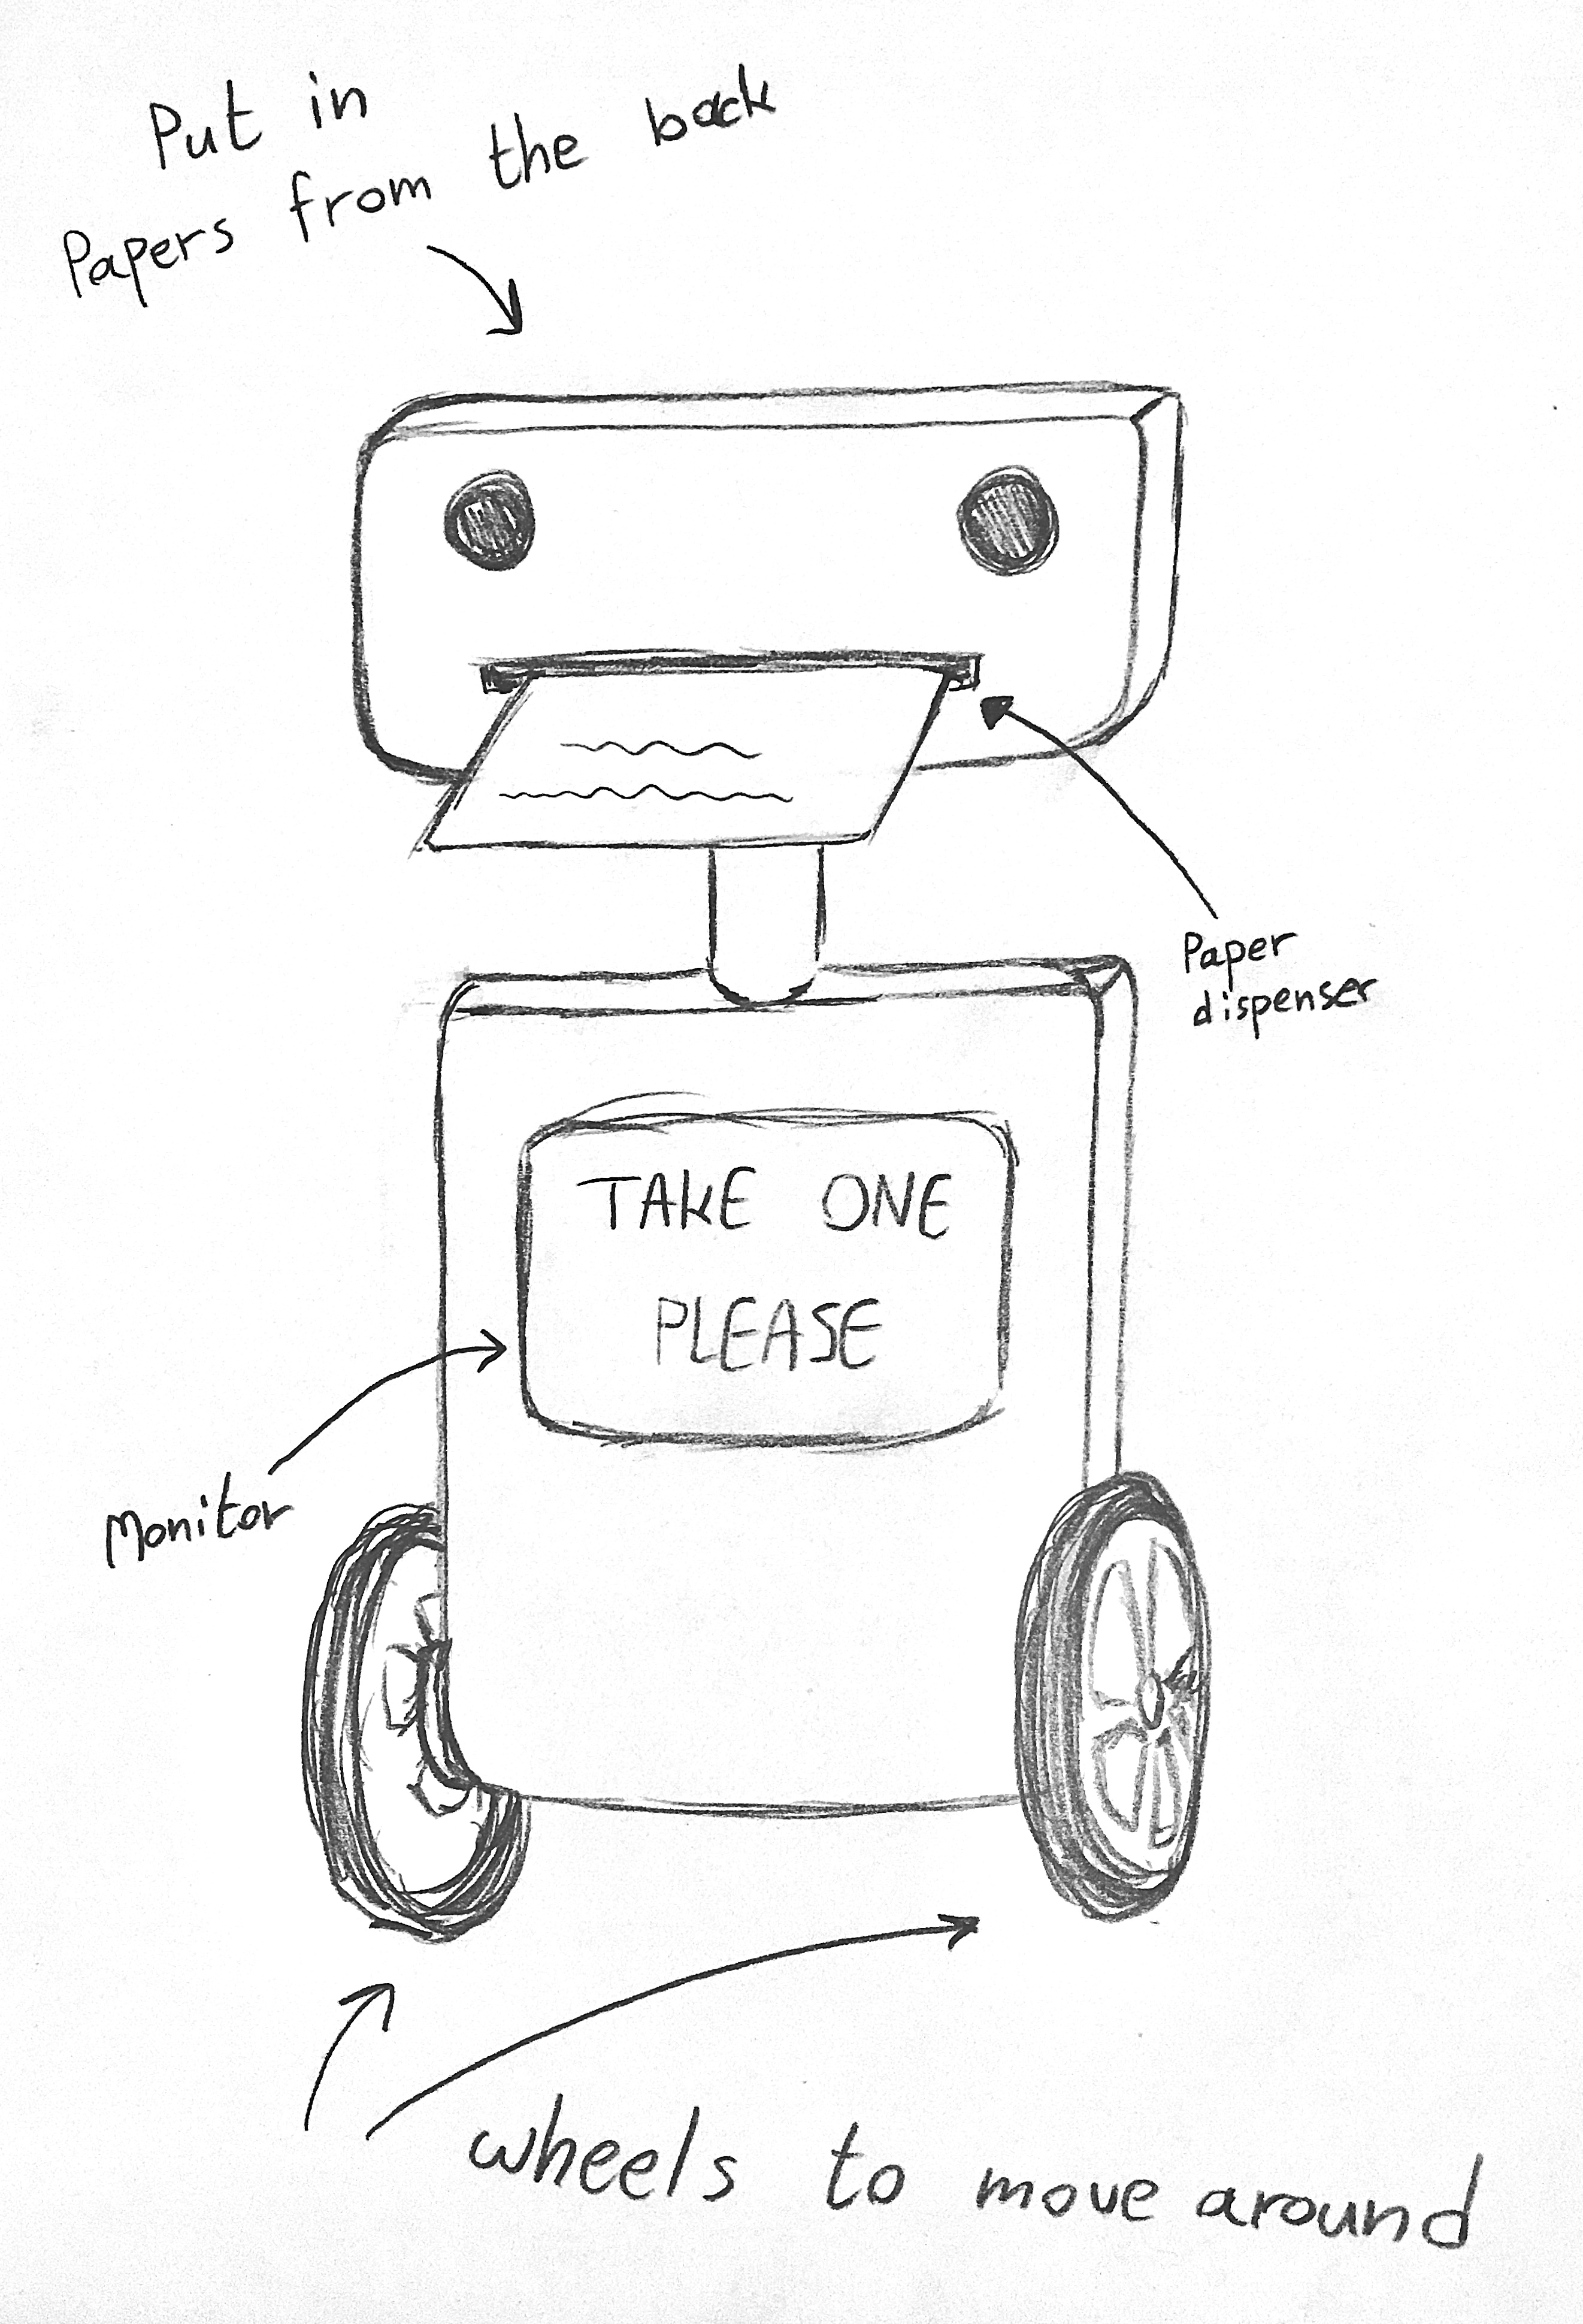 Put in
Papers from the back
Paper
dispenser
TAKE ONE
PLEASE
Monitor
wheels to move around